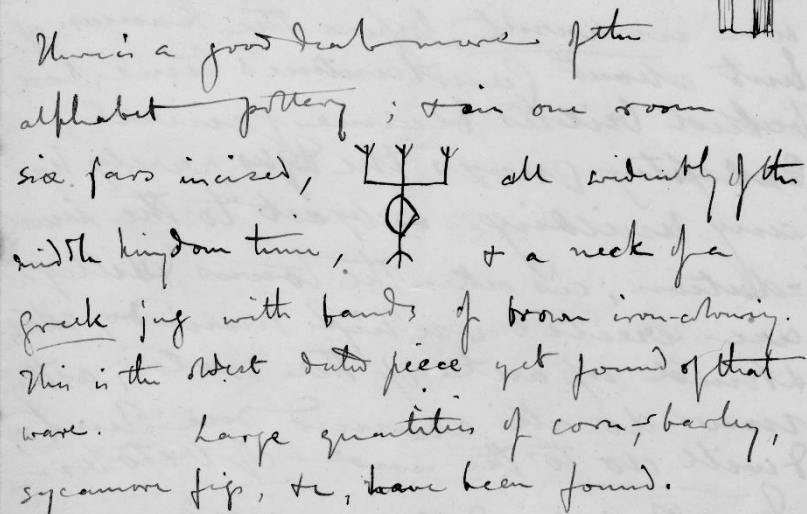 There is a good deal more of the
alphabet pottery ; & in one room
six jars incised, all evidently of the
middle kingdom time, & a neck of a
greek jug with bands of brown iron-colouring.
This is the oldest dated piece yet found of that
ware. Large quantities of corn, & barley,
sycamore figs, &c, have been found.